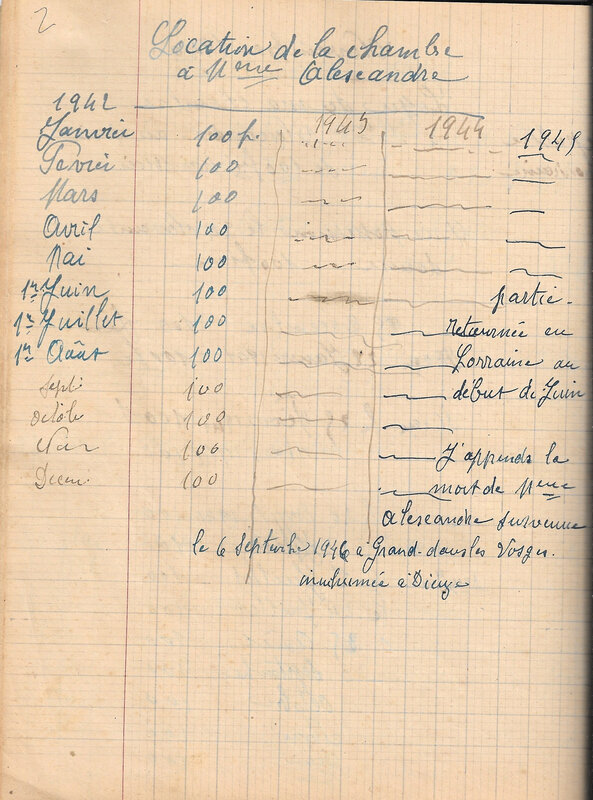 2
Location de la chambre
à Mme Alexandre
1942 1943 1944 1945
Janvier 100 f.
Fevrier 100
Mars 100
Avril 100
Mai 100
1er Juin 100 partie.
1er Juillet 100 retournée en
1er Août 100 Lorraine au
Sept: 100 début de Juin
Octob 100
Nov 100 J'apprends la
Decem. 100 mort de Mme
Alexandre survenue
le 6 Septembre 1946 à Grand dans les Vosges.
inhumée à Dieuze